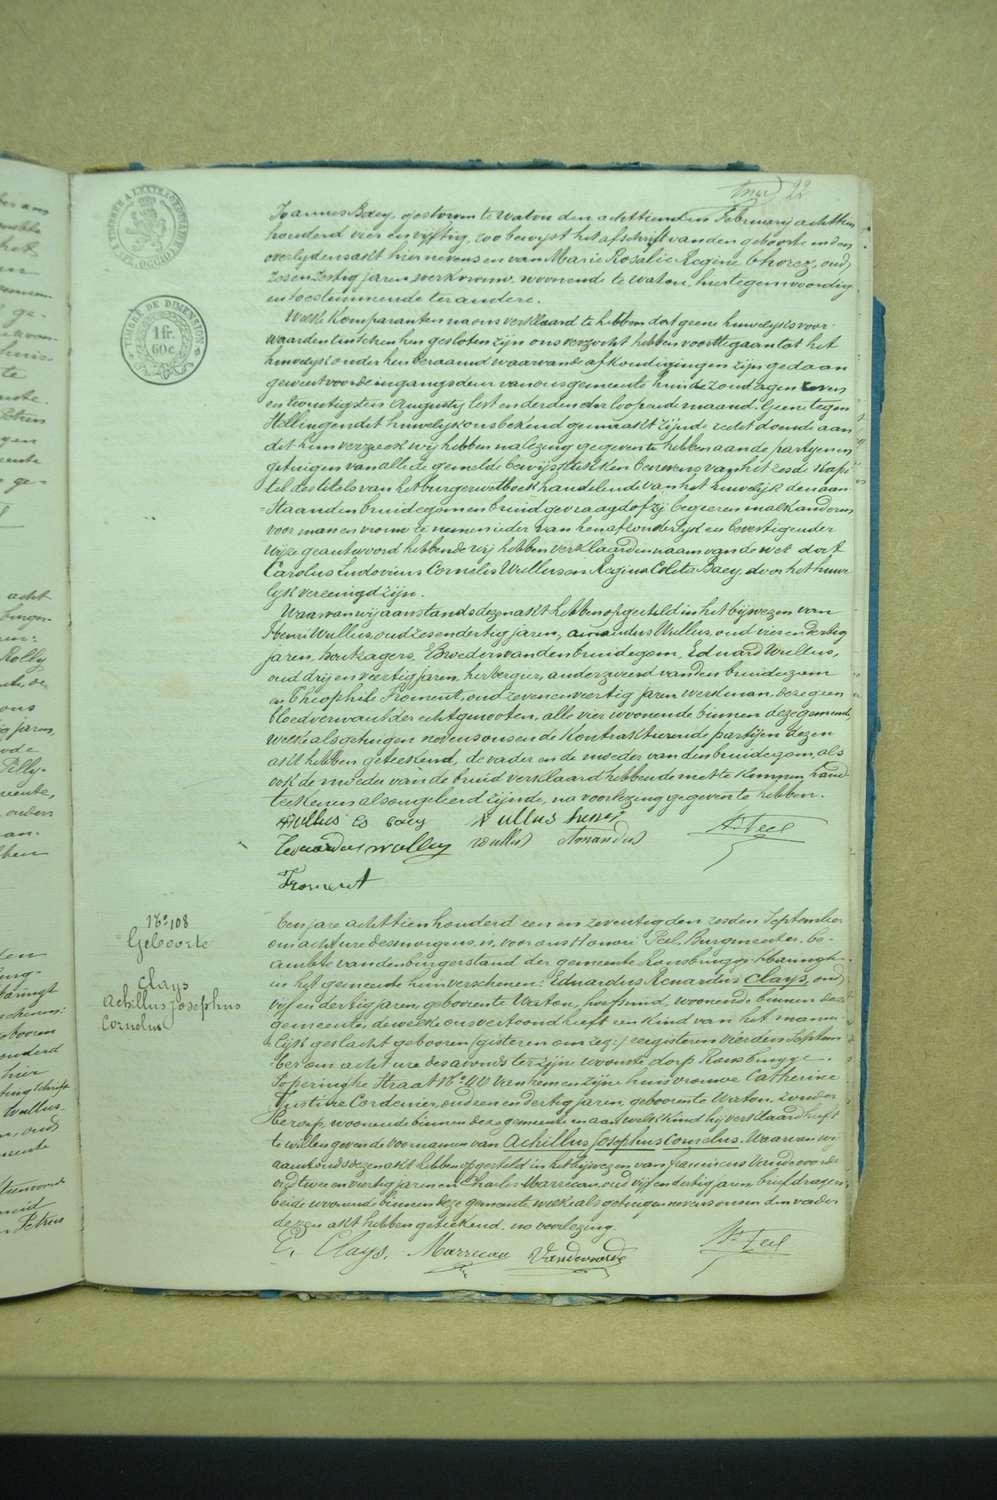 22
TIMBRE DE DIMENSION
1 fr.
60 c
Joannes Baey, gestorven te Watou den achttienden February achttien
honderd vier en vyftig, zoo bewyst het afschrift van den geboorte en den
overlydensakt hier nevens en van Marie Rosalie Regine oud
zes en zestig jaren, werkvrouw, woonende te Watou, hier tegenwoordig
en toestemmende ter andere.
Welke komparanten na ons verklaard te hebben dat geene huwelyksvoor-
waarden tusschen hen gesloten zyn ons verzocht hebben voort te gaan tot het
huwelyk onder hen beraamd waarvan de afkondigingen zyn gedaan
geweest voor de ingangsdeur van ons gemeente huis de zondagen zeven
en twintigsten Augusty lest en derden der loopende maand. Geene tegen
stellingen dit huwelyk ons bekend gemaakt zynde recht doende aan
dit hun verzoek wy hebben na lezing gegeven te hebben aan de partyen en
getuigen van alle de gemelde bewysstukken benevens van het zesde kapi-
tel des titels van het burger wetboek handelende van het huwelyk den aan-
staanden bruidegom en bruid gevraagd of zy begeeren malkanderen
voor man en vrouw te nemen ieder van hen afzonderlyk en bevestigender
wyze geantwoord hebbende wy hebben verklaard in naam van de wet dat
Carolus Ludovicus Cornelis Wullus en Regina Coleta Baey, door het huwe-
lyk vereenigd zyn.
Waarvan wy aanstonds dezen akt hebben opgesteld in het bywezen van
Henri Wullus, oud zes en dertig jaren, Amandus Wullus, oud vier en dertig
jaren, houtzagers, Broeders van den bruidegom, Eduard Wullus,
oud dry en veertig jaren, herbergier, anderzweerd van den bruidegom
en Theophile Froment, oud zeven en veertig jaren werkman, deze geen
bloedverwant der echtgenooten, alle vier woonende binnen deze gemeente,
welke als getuigen nevens ons en de kontrakteerende partyen dezen
akt hebben geteekend, de vader en de moeder van den bruidegom, als
ook de moeder van de bruid verklaard hebbende niet te kennen hand
teekenen als ongeleerd zynde, na voorlezing gegeven te hebben.
Wullus C Baey Wullus henri Hre Peel
Eduardus Wullus Wullus Amandus
Froment
No 108
Geboorte
Clays
Achillus Josephus
Cornelus
Ten jare achttien honderd een en zeventig den zesden September
om acht ure des morgens, is voor ons Honoré Peel, Burgmeester, be-
ambte van den burgerstand der gemeente Rousbrugge-Haringhe
in het gemeente huis verschenen: Eduardus Renardus Clays, oud
vyf en dertig jaren, geboren te Watou, hoefsmid, woonende binnen deze
gemeente, dewelke ons vertoond heeft een kind van het manne-
lyk geslacht geboren (gisteren om zeg:) eergisteren vierden Septem
ber om acht ure des avonds ter zyne woonste dorp Rousbrugge,
Poperinghe Straat No 40 van hem en zyne huisvrouwe Catherine
Justine Cordenier, oud een en dertig jaren, geboren te Watou, zonder
beroep, woonende binnen deze gemeente en aan welk kind hy verklaard heeft
te willen geven de voornamen van Achillus Josephus Cornelus. Waarvan wy
aanstonds dezen akt hebben opgesteld in het bywezen van Franciscus Vandevoorde
oud twee en veertig jaren en Charles Marreau, oud vyf en dertig jaren briefdrager,
beide woonende binnen deze gemeente, welke als getuigen nevens ons en den vader
dezen akt hebben geteekend, na voorlezing
E. Clays. Marreau Vandevoorde Hre Peel